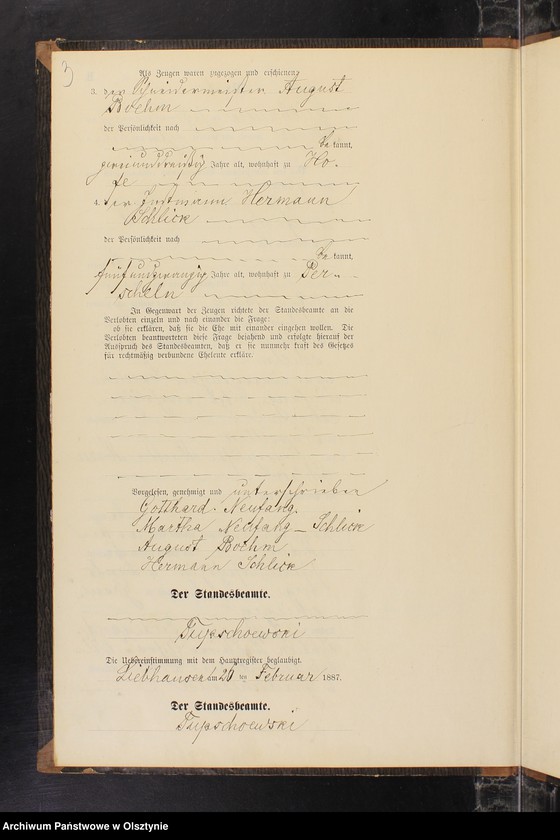 3
Als Zeugen waren zugezogen und erschienen:
3. der Schneidermeister August
Boehm
der Persönlichkeit nach
be kannt,
zweiundzwanzig Jahre alt, wohnhaft zu Ho-
fe
4. der Instmann Hermann
Schlick
der Persönlichkeit nach
be kannt,
fünfundzwanzig Jahre alt, wohnhaft zu Per-
scheln
In Gegenwart der Zeugen richtete der Standesbeamte an die
Verlobten einzeln und nach einander die Frage:
ob sie erklären, daß sie die Ehe mit einander eingehen wollen. Die
Verlobten beantworteten diese Frage bejahend und erfolgte hierauf der
Ausspruch des Standesbeamten, daß er sie nunmehr kraft des Gesetzes
für rechtmäßig verbundene Eheleute erkläre.
Vorgelesen, genehmigt und unterschrieben
Gotthard Neufang.
Martha Neufang - Schlick
August Boehm.
Hermann Schlick
Der Standesbeamte.
Die Uebereinstimmung mit dem Hauptregister beglaubigt.
Liebhausen am 26 ten Februar 1887.
Der Standesbeamte.
Archiwum Państwowe w Olsztynie